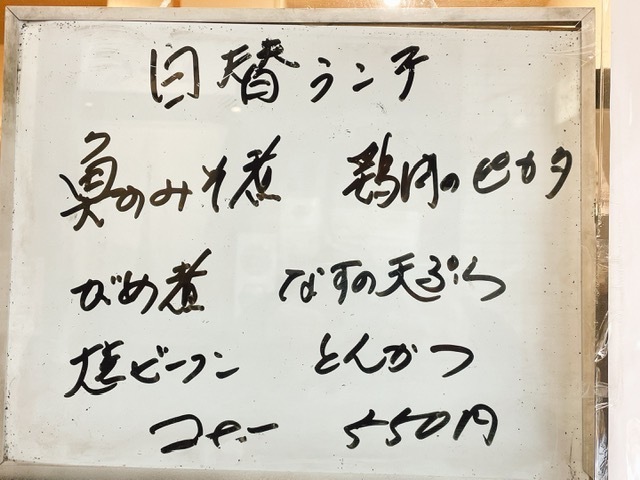 日替ランチ
魚のみそ煮 鶏肉のピカタ
がめ煮 なすの天ぷら
焼ビーフン とんかつ
コーヒー 550円